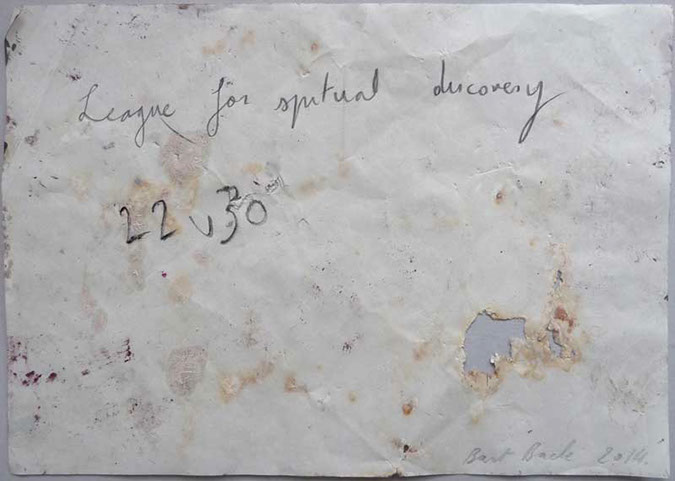 League for spritual discovery
22 u 30
Bart Back 2014.